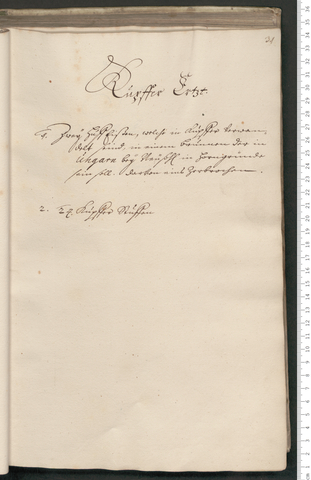 31
Küpffer Ertzt.
1. Zweÿ Huff Eisen, welche in Küpffer verwan,
delt sind in einem Brunnen der in
Ungarn beÿ Neusohl in Herrngrundt
sein soll. davon eins Zerbrochen.
2. 24. Küpffer Stuffen